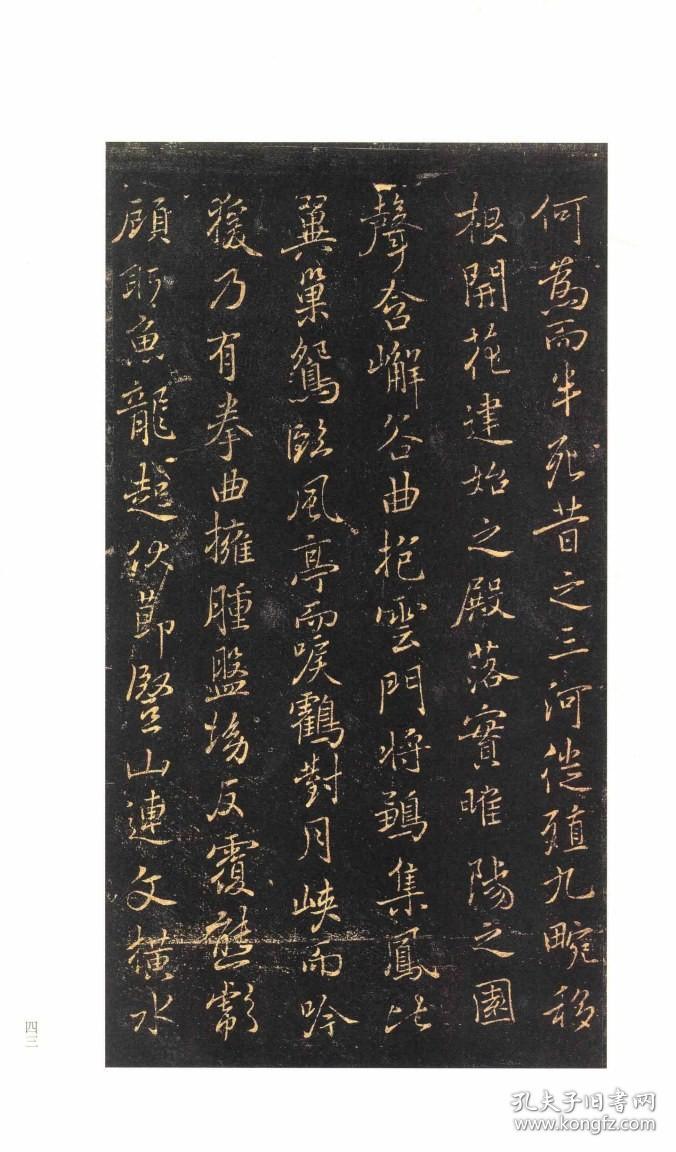 何為而半死昔之三河徙殖九畹移
根開花建始之殿落實睢陽之園
聲含嶰谷曲抱雲門將鶵集鳳比
翼巢鴛臨風亭而唳鶴對月峽而吟
猨乃有拳曲擁腫盤坳反覆熊彪
顧眄魚龍起伏節豎山連文橫水
四三
孔夫子旧书网
www.kongfz.com